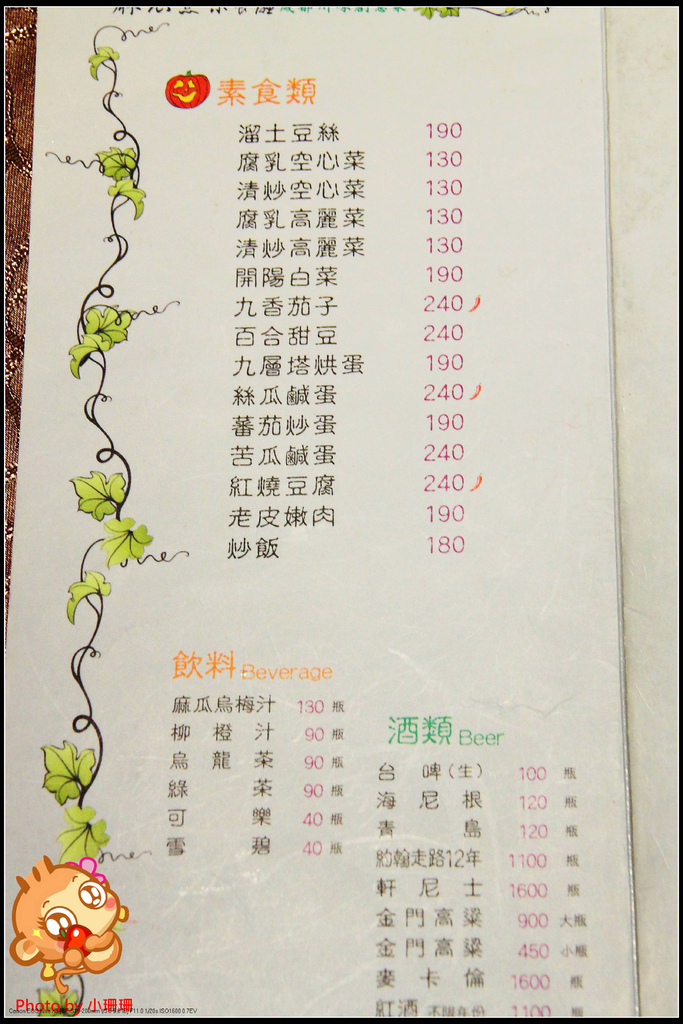 素食類
溜土豆絲 190
腐乳空心菜 130
清炒空心菜 130
腐乳高麗菜 130
清炒高麗菜 130
開陽白菜 190
九香茄子 240
百合甜豆 240
九層塔烘蛋 190
絲瓜鹹蛋 240
蕃茄炒蛋 190
苦瓜鹹蛋 240
紅燒豆腐 240
老皮嫩肉 190
炒飯 180
飲料 Beverage
麻瓜烏梅汁 130 瓶
柳橙汁 90 瓶
烏龍茶 90 瓶
綠茶 90 瓶
可樂 40 瓶
雪碧 40 瓶
酒類 Beer
台啤(生) 100 瓶
海尼根 120 瓶
青島 120 瓶
約翰走路12年 1100 瓶
軒尼士 1600 瓶
金門高粱 900 大瓶
金門高粱 450 小瓶
麥卡倫 1600 瓶
紅酒 不限年份 1100 瓶
Photo by 小珊珊